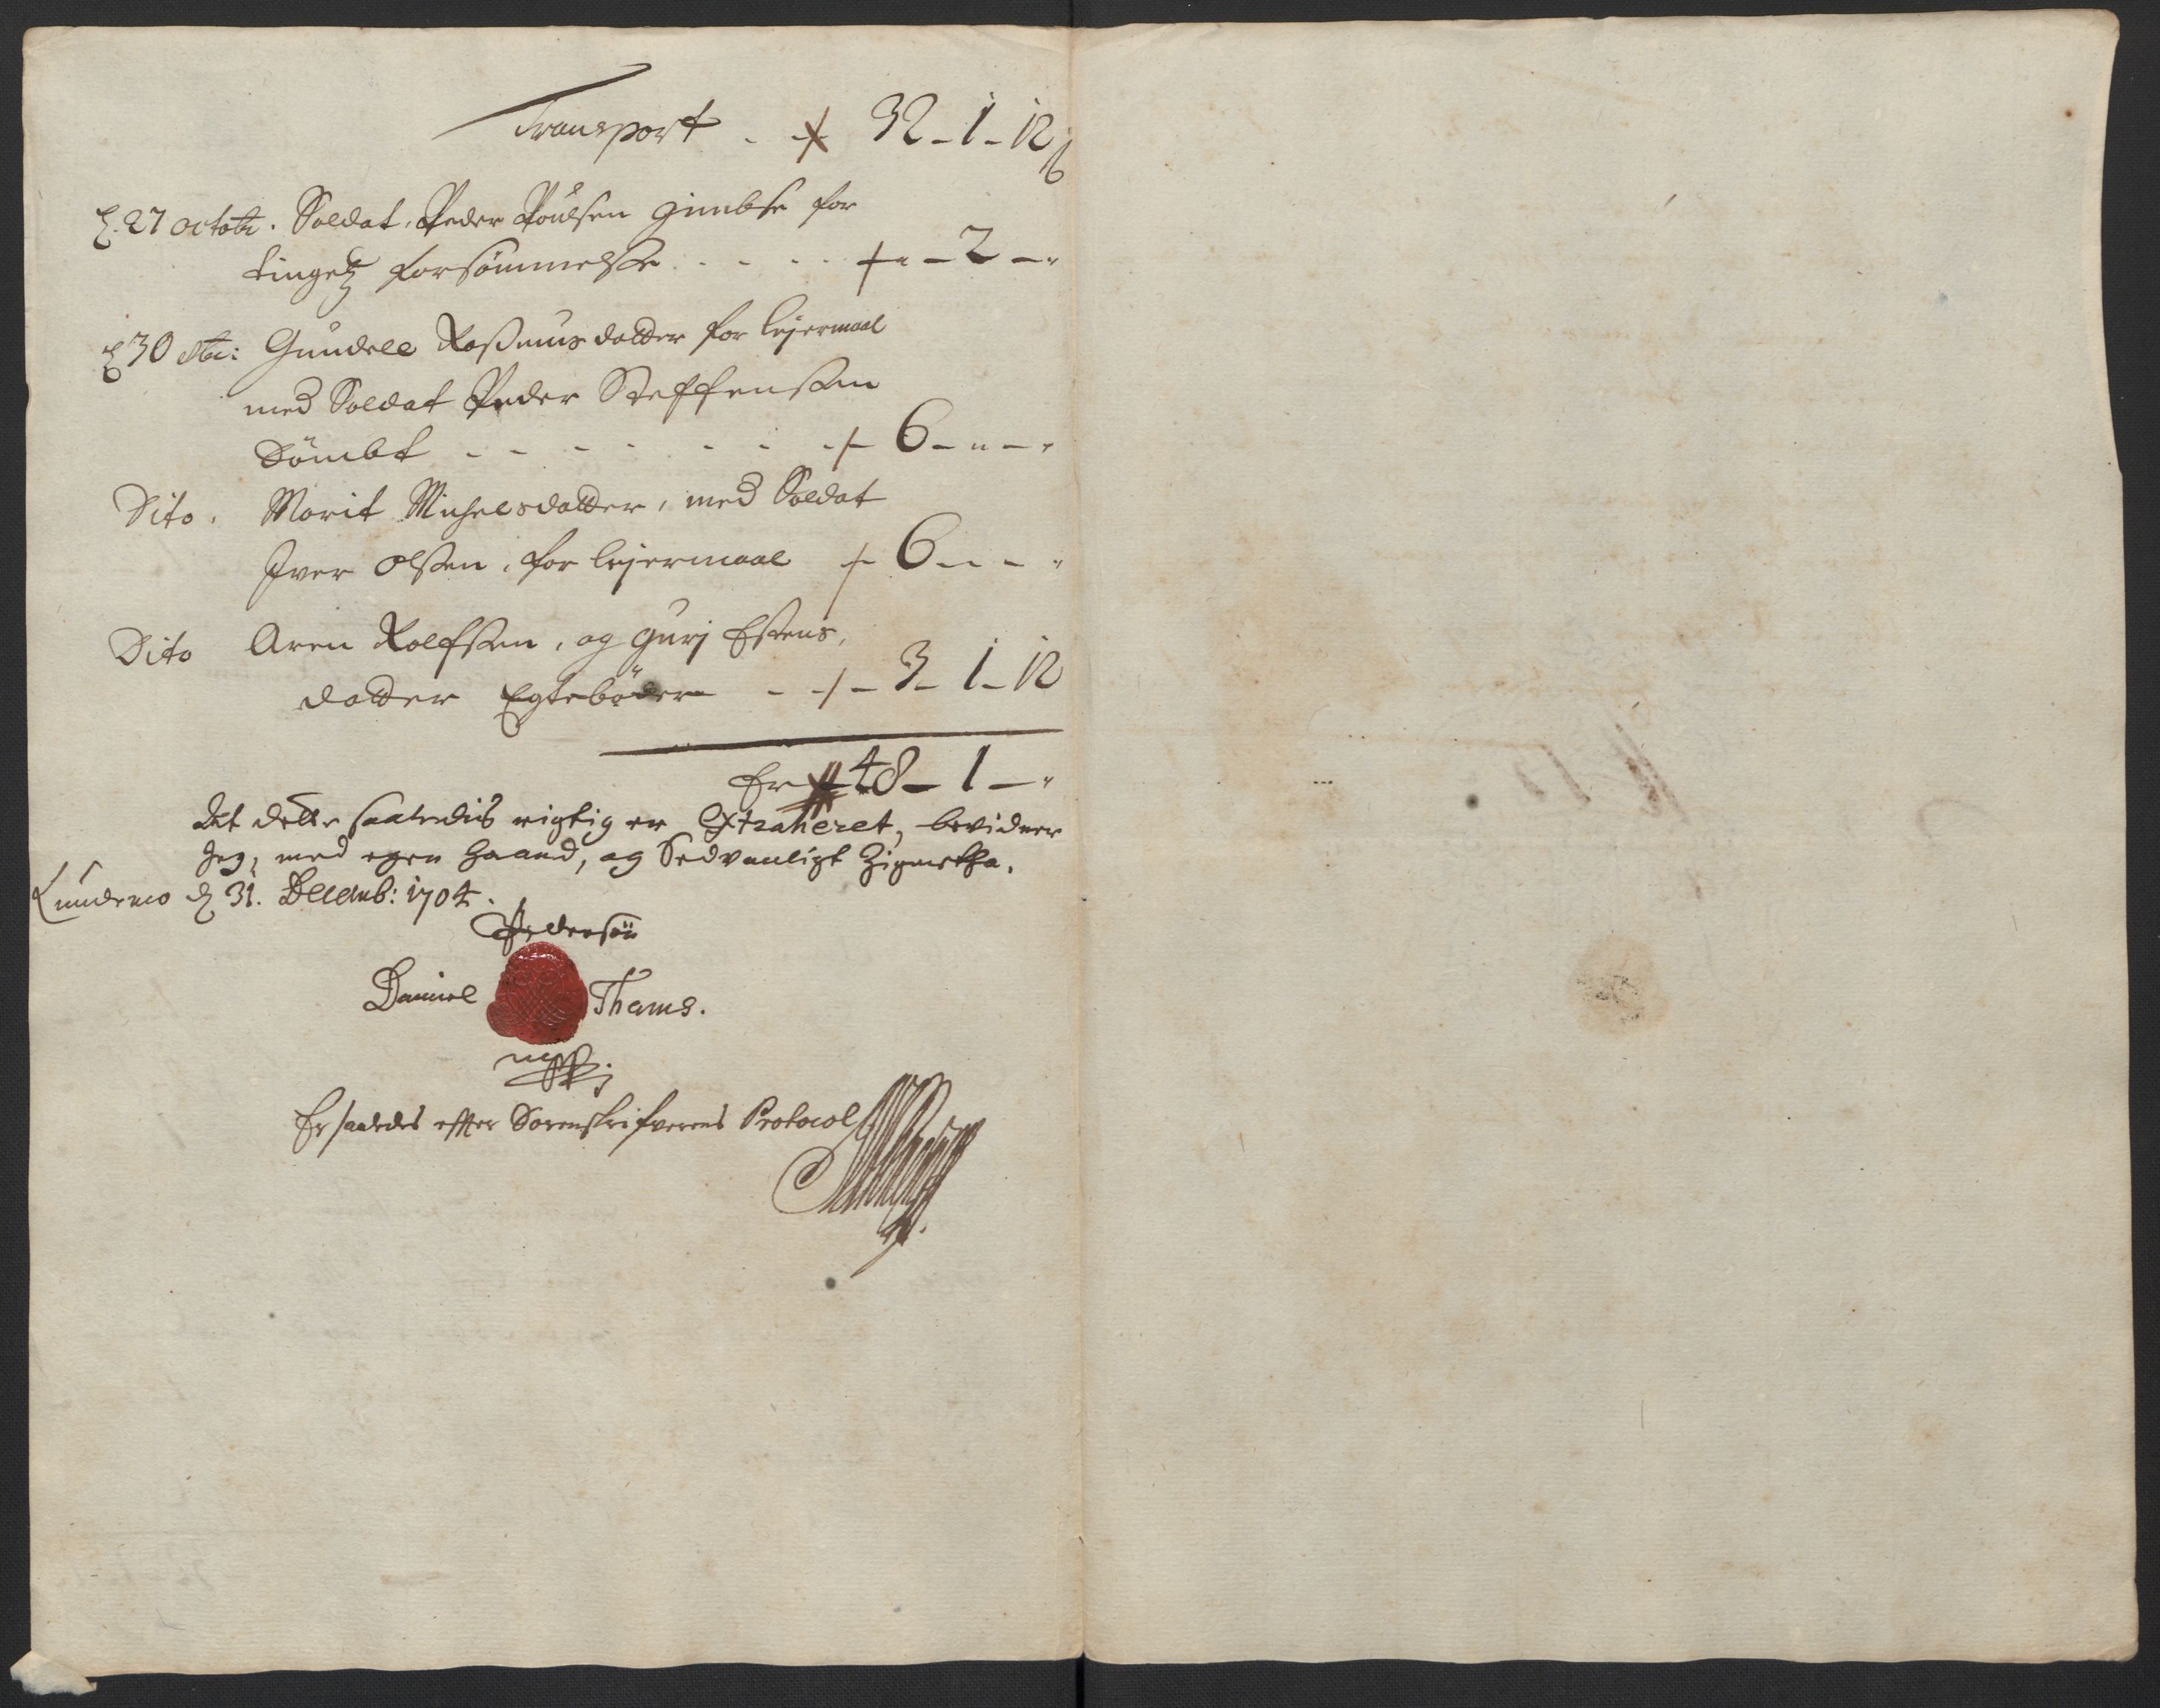 Transport . . 32 - 1 - 12 ß
d. 27 octobr. Soldat, Peder Poulsen Gimbse for
tingetz forsömmelse . . . . " - 2 - "
d 30 dito: Gundele Rasmusdatter for leyermaal
med Soldat Peder Steffensen
Dömbt - - - - - - - 6 - " - "
Dito. Marit Michelsdatter, med Soldat
Iver Olssen, for leyermaal 6 - " - "
Dito Aren Rolfssen, og Gurj Estens,
datter Egtebøder - - 3 - 1 - 12
Er 48 - 1 - "
Det dette saaledis rigtig er Extraheret, bevidner
Jeg, med egen Haand, og Sedvanligt Zignethe.
Lundemo d 31. Decemb: 1704.
Pedersön
Daniel Thams.
mppj
Er saaledes effter Sorenskrifverens Protocol